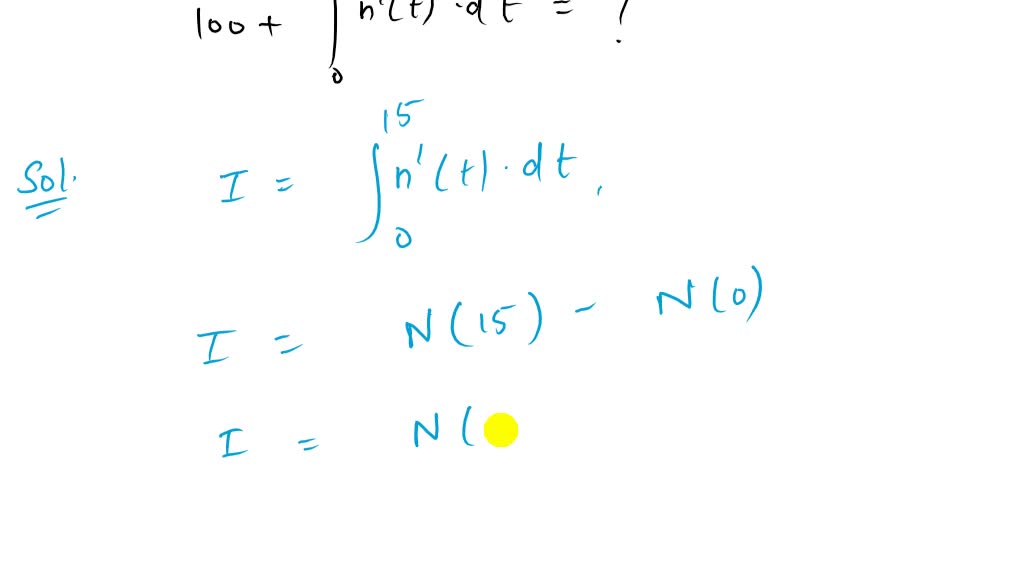 100 + ∫₀ n'(t) · dt = ?
Sol. I = ∫₀¹⁵ n'(t) · dt,
I = N(15) - N(0)
I = N(